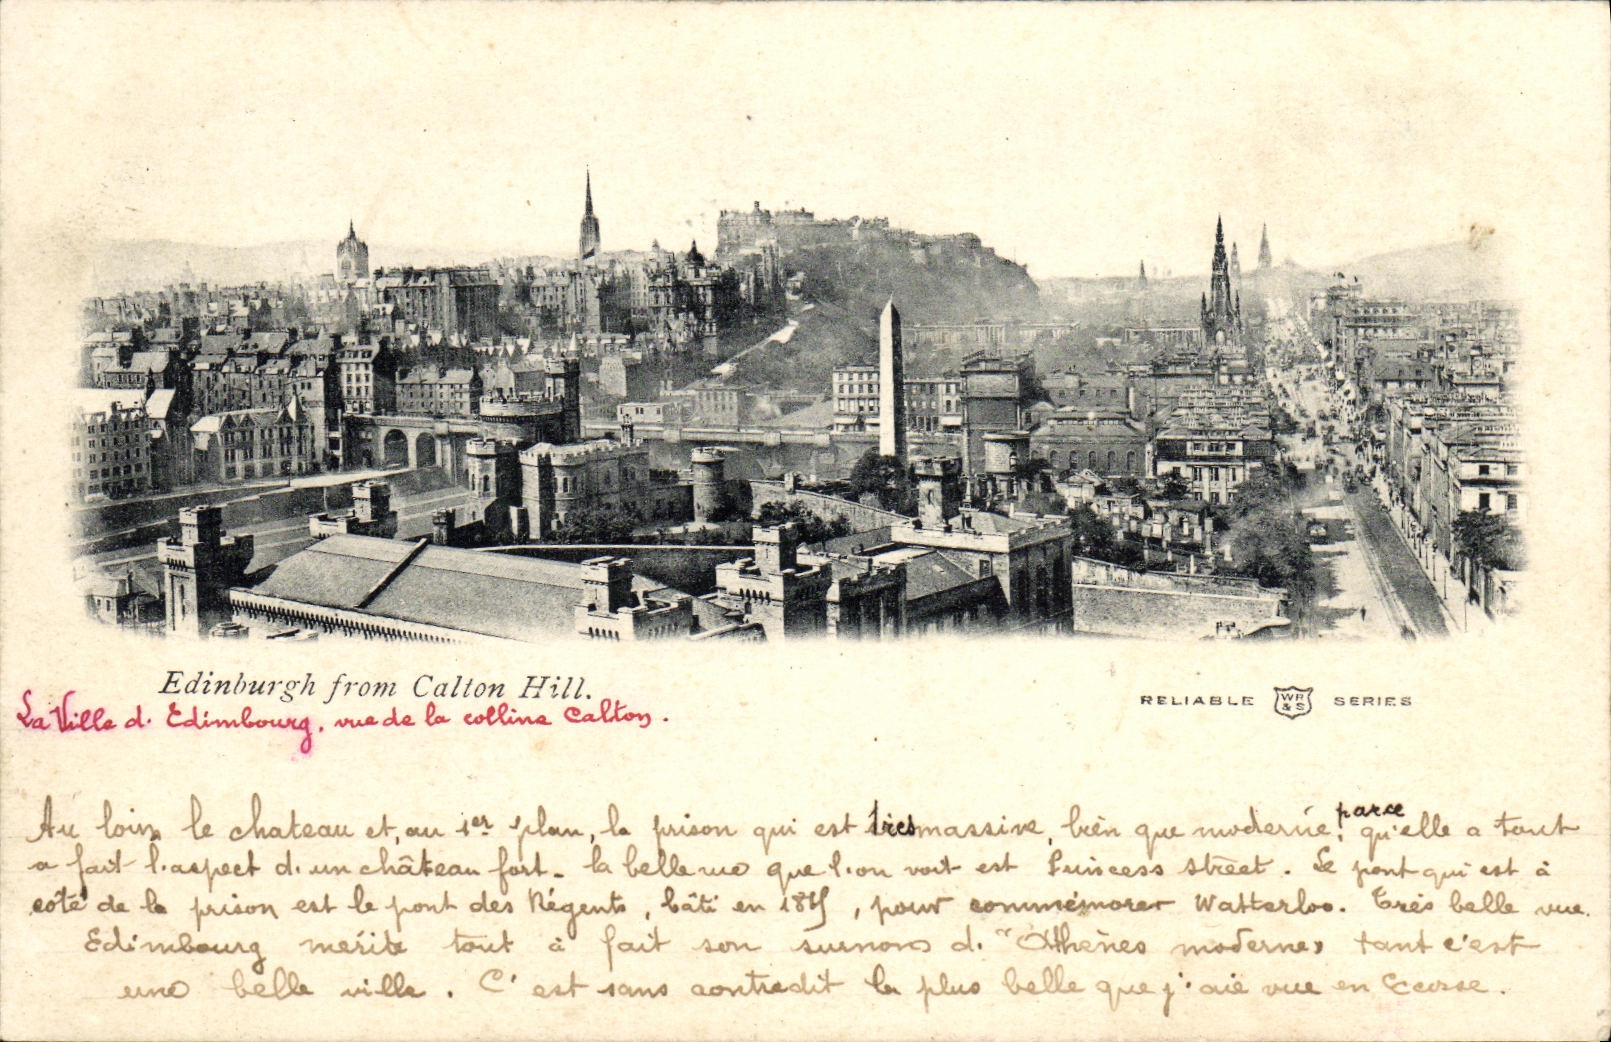 Edinburgh from Calton Hill.
RELIABLE WR & S SERIES
La Ville d'Edimbourg, vue de la colline Calton.
Au loin le chateau et, au 1er plan, la prison qui est très massive, bien que moderne, parce qu'elle a tout
a fait l'aspect d'un château fort. la belle rue que l'on voit est Princess Street. Le pont qui est à
côté de la prison est le pont des Régents, bâti en 1815, pour commémorer Watterloo. Très belle vue.
Edimbourg mérite tout à fait son surnom d'"Athènes moderne" tant c'est
une belle ville. C'est sans contredit la plus belle que j'aie vue en Ecosse.